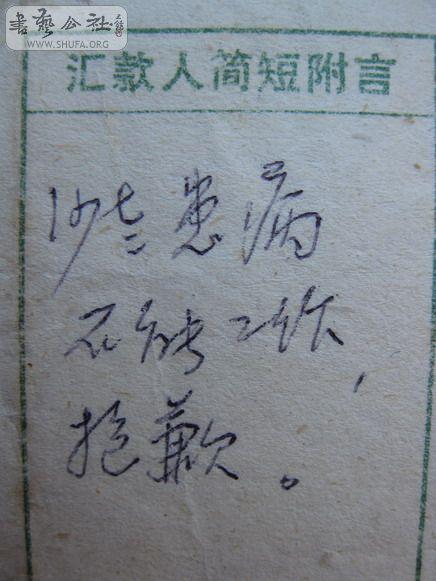 書藝公社
WWW.SHUFA.ORG
汇款人简短附言
患病
不能工作，
抱歉。